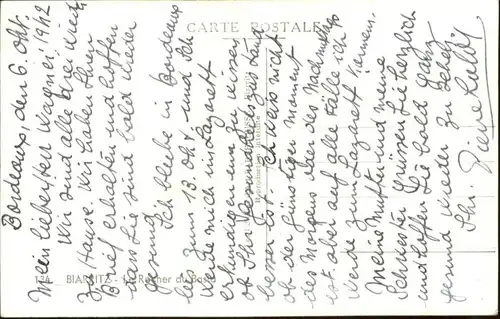 CARTE POSTALE
Bordeaux den 6. Okt. 1942
Mein liebester Wagner!
Wir sind alle drei
zu Hause. Wir haben Ihren
Brief erhalten und hoffen
dass Sie sind bald wieder
gesund.
Ich bleibe in Bordeaux
bis zum 13. Okt. und ich
werde mich im Lazarett
erkundigen um zu wissen
ob Ihr Gesundheitszustand
besser ist. Ich weiss nicht
ob der günstiger moment
des Morgens oder des Nachmittags
ist aber auf alle Fälle ich
werde zum Lazarett kommen.
Meine Mutter und meine
Schwester Grüssen Sie herzlich
und hoffen Sie bald ganz
gesund wieder zu sehen.
Ihr. Pierre
BIARRITZ - Le Rocher du Basta
Reproduction interdite